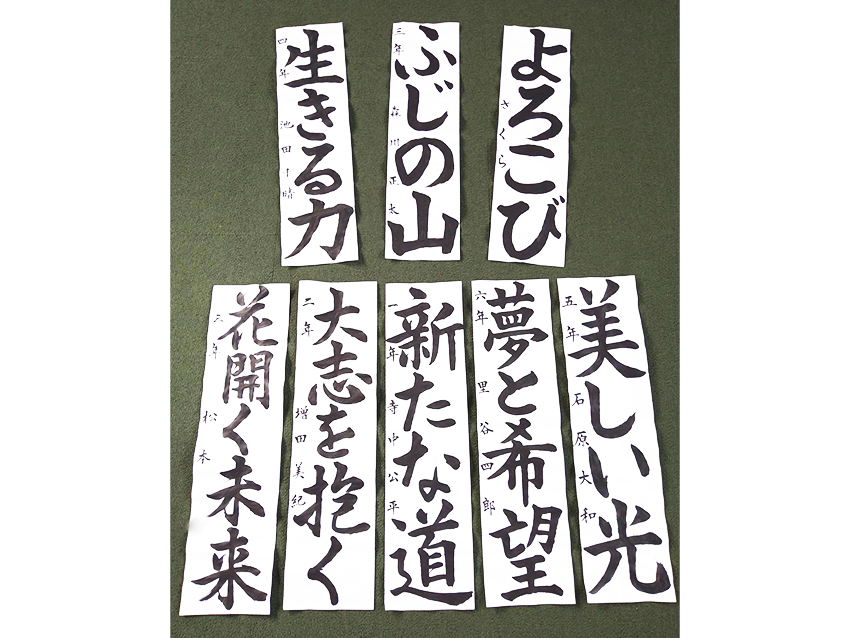 よろこび
さくら
ふじの山
三年 森川正太
生きる力
四年 池田千晴
美しい光
五年 石原大和
夢と希望
六年 里谷四郎
新たな道
一年 寺中公平
大志を抱く
二年 増田美紀
花開く未来
三年 松本